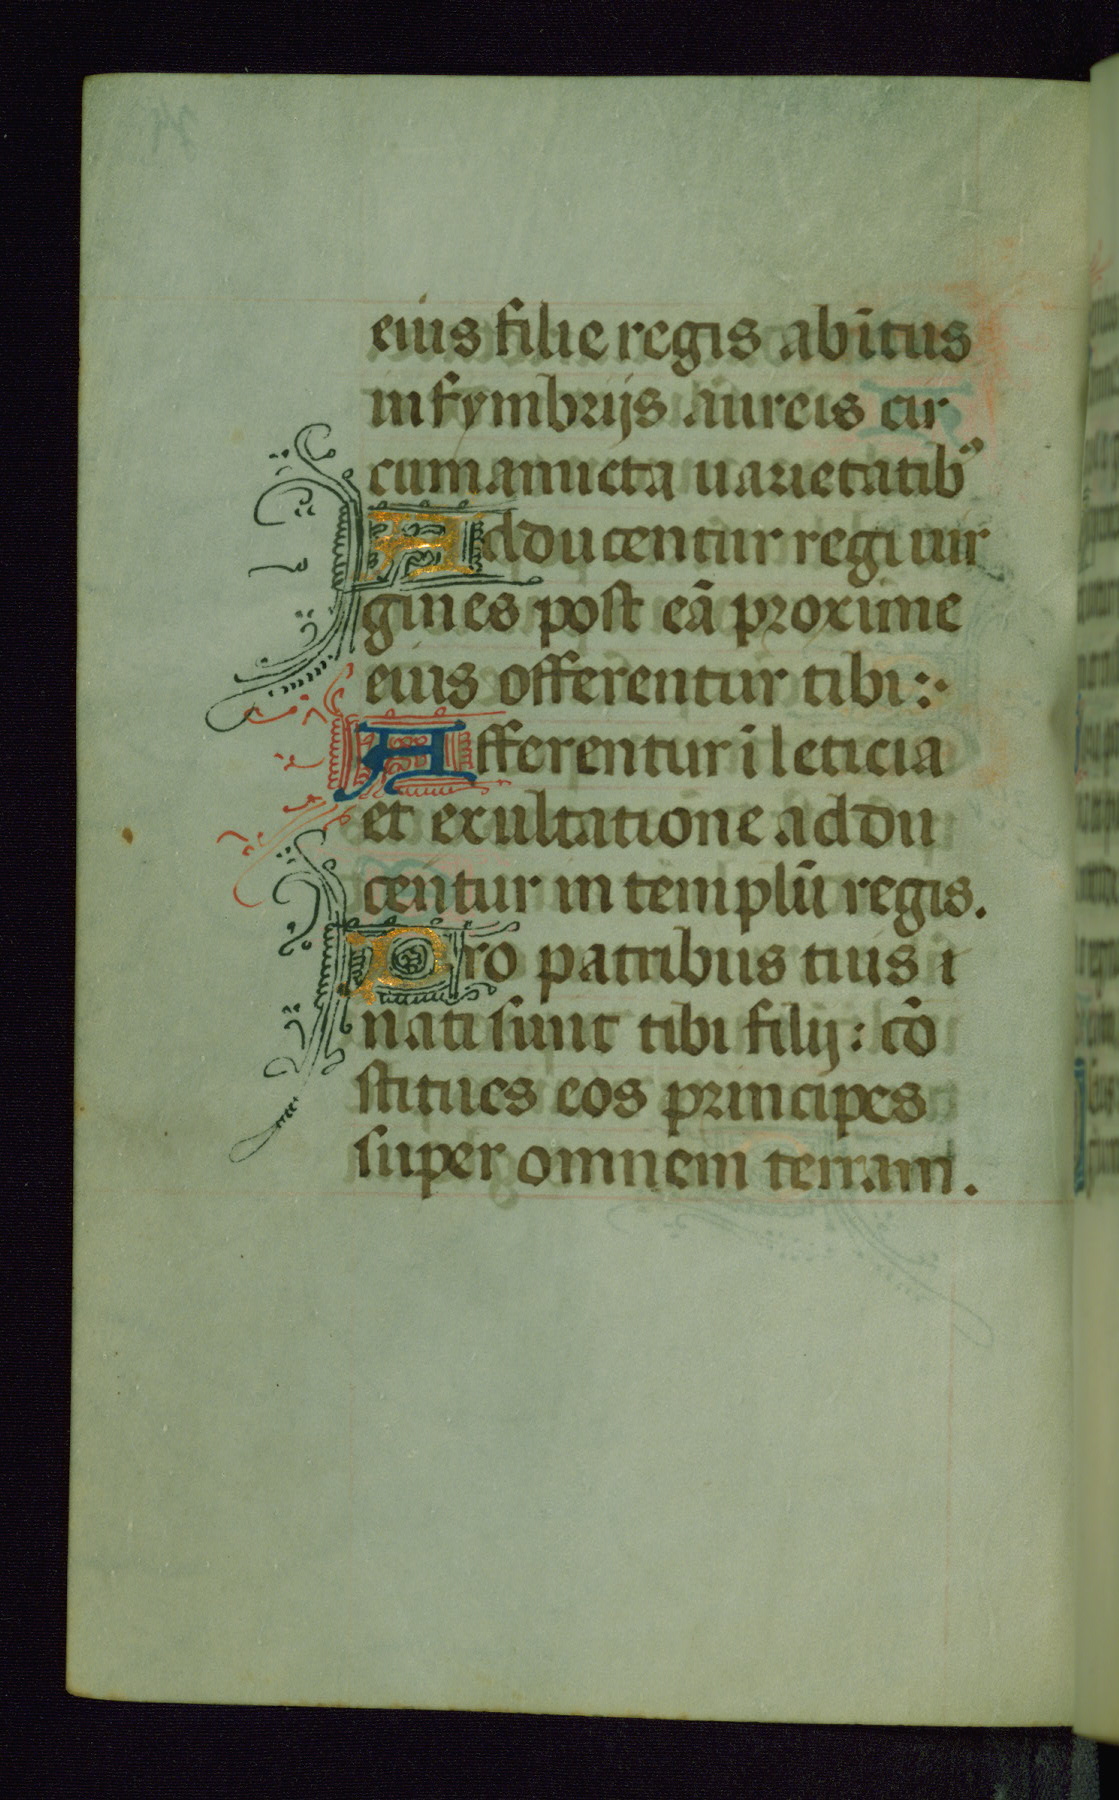 eius filie regis ab ītus
in fymbrijs aureis cir
cumamicta uarietatibꝰ
Adducentur regi uir
gines post eā proxime
eius offerentur tibi:·
Afferentur ī leticia
et exultatione addu
centur in templū regis.
Pro patribus tuis ı
nati sunt tibi filij: cō
stitues eos principes
super omnem terram.